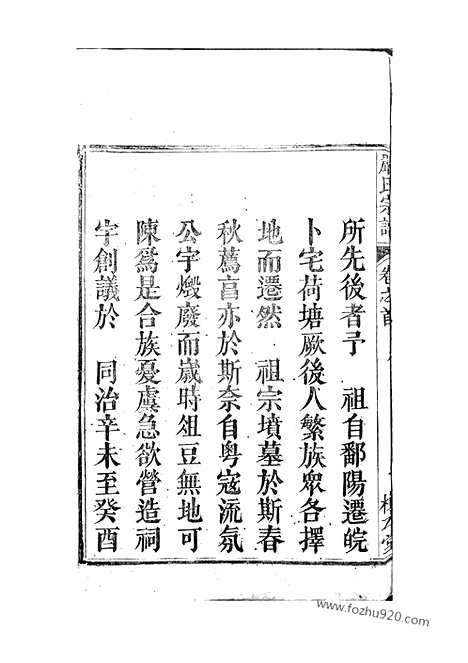 所先後者予　祖自鄱陽遷皖
卜宅荷塘厥後人繁族衆各擇
地而遷然　祖宗墳墓於斯春
秋薦亯亦於斯奈自粵寇流氛
公宇燬廢而歲時俎豆無地可
陳爲是合族憂虞急欲營造祠
宇創議於　同治辛未至癸酉
氏宗譜
卷之首
www.fozhu920.com